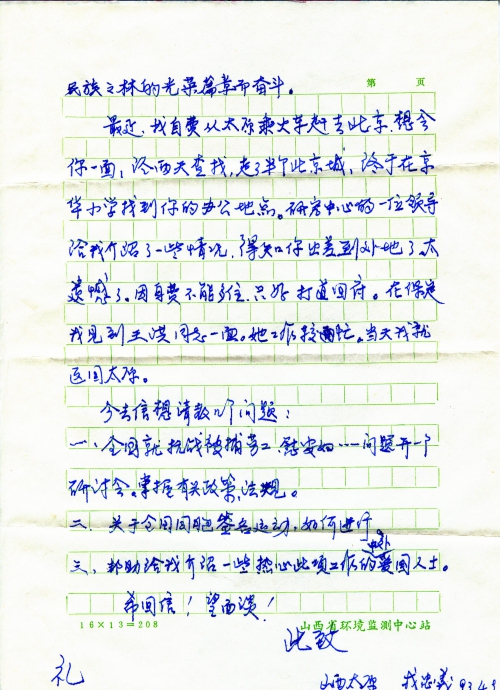 第 页
民族之林的光荣篇章而奋斗。
最近，我自费从太原乘火车赶去北京，想会
你一面，经两天查找，走了半个北京城，终于在京
华小学找到你的办公地点。研究中心的一位领导
给我介绍了一些情况，得知你出差到外地了，太
遗憾了。因自费不能多住，只好打道回府。在保定
我见到王洪同志一面。她工作较忙。当天我就
返回太原。
今去信想请教几个问题：
一、全国就抗战被捕劳工、慰安妇……问题开一个
研讨会。掌握有关政策，法规。
二、关于全国同胞签名运动，如何进行
三、帮助给我介绍一些热心此项工作的爱国人士。
希回信！望面谈！
16×13=208 山西省环境监测中心站
此致
礼 山西太原 93.4.5